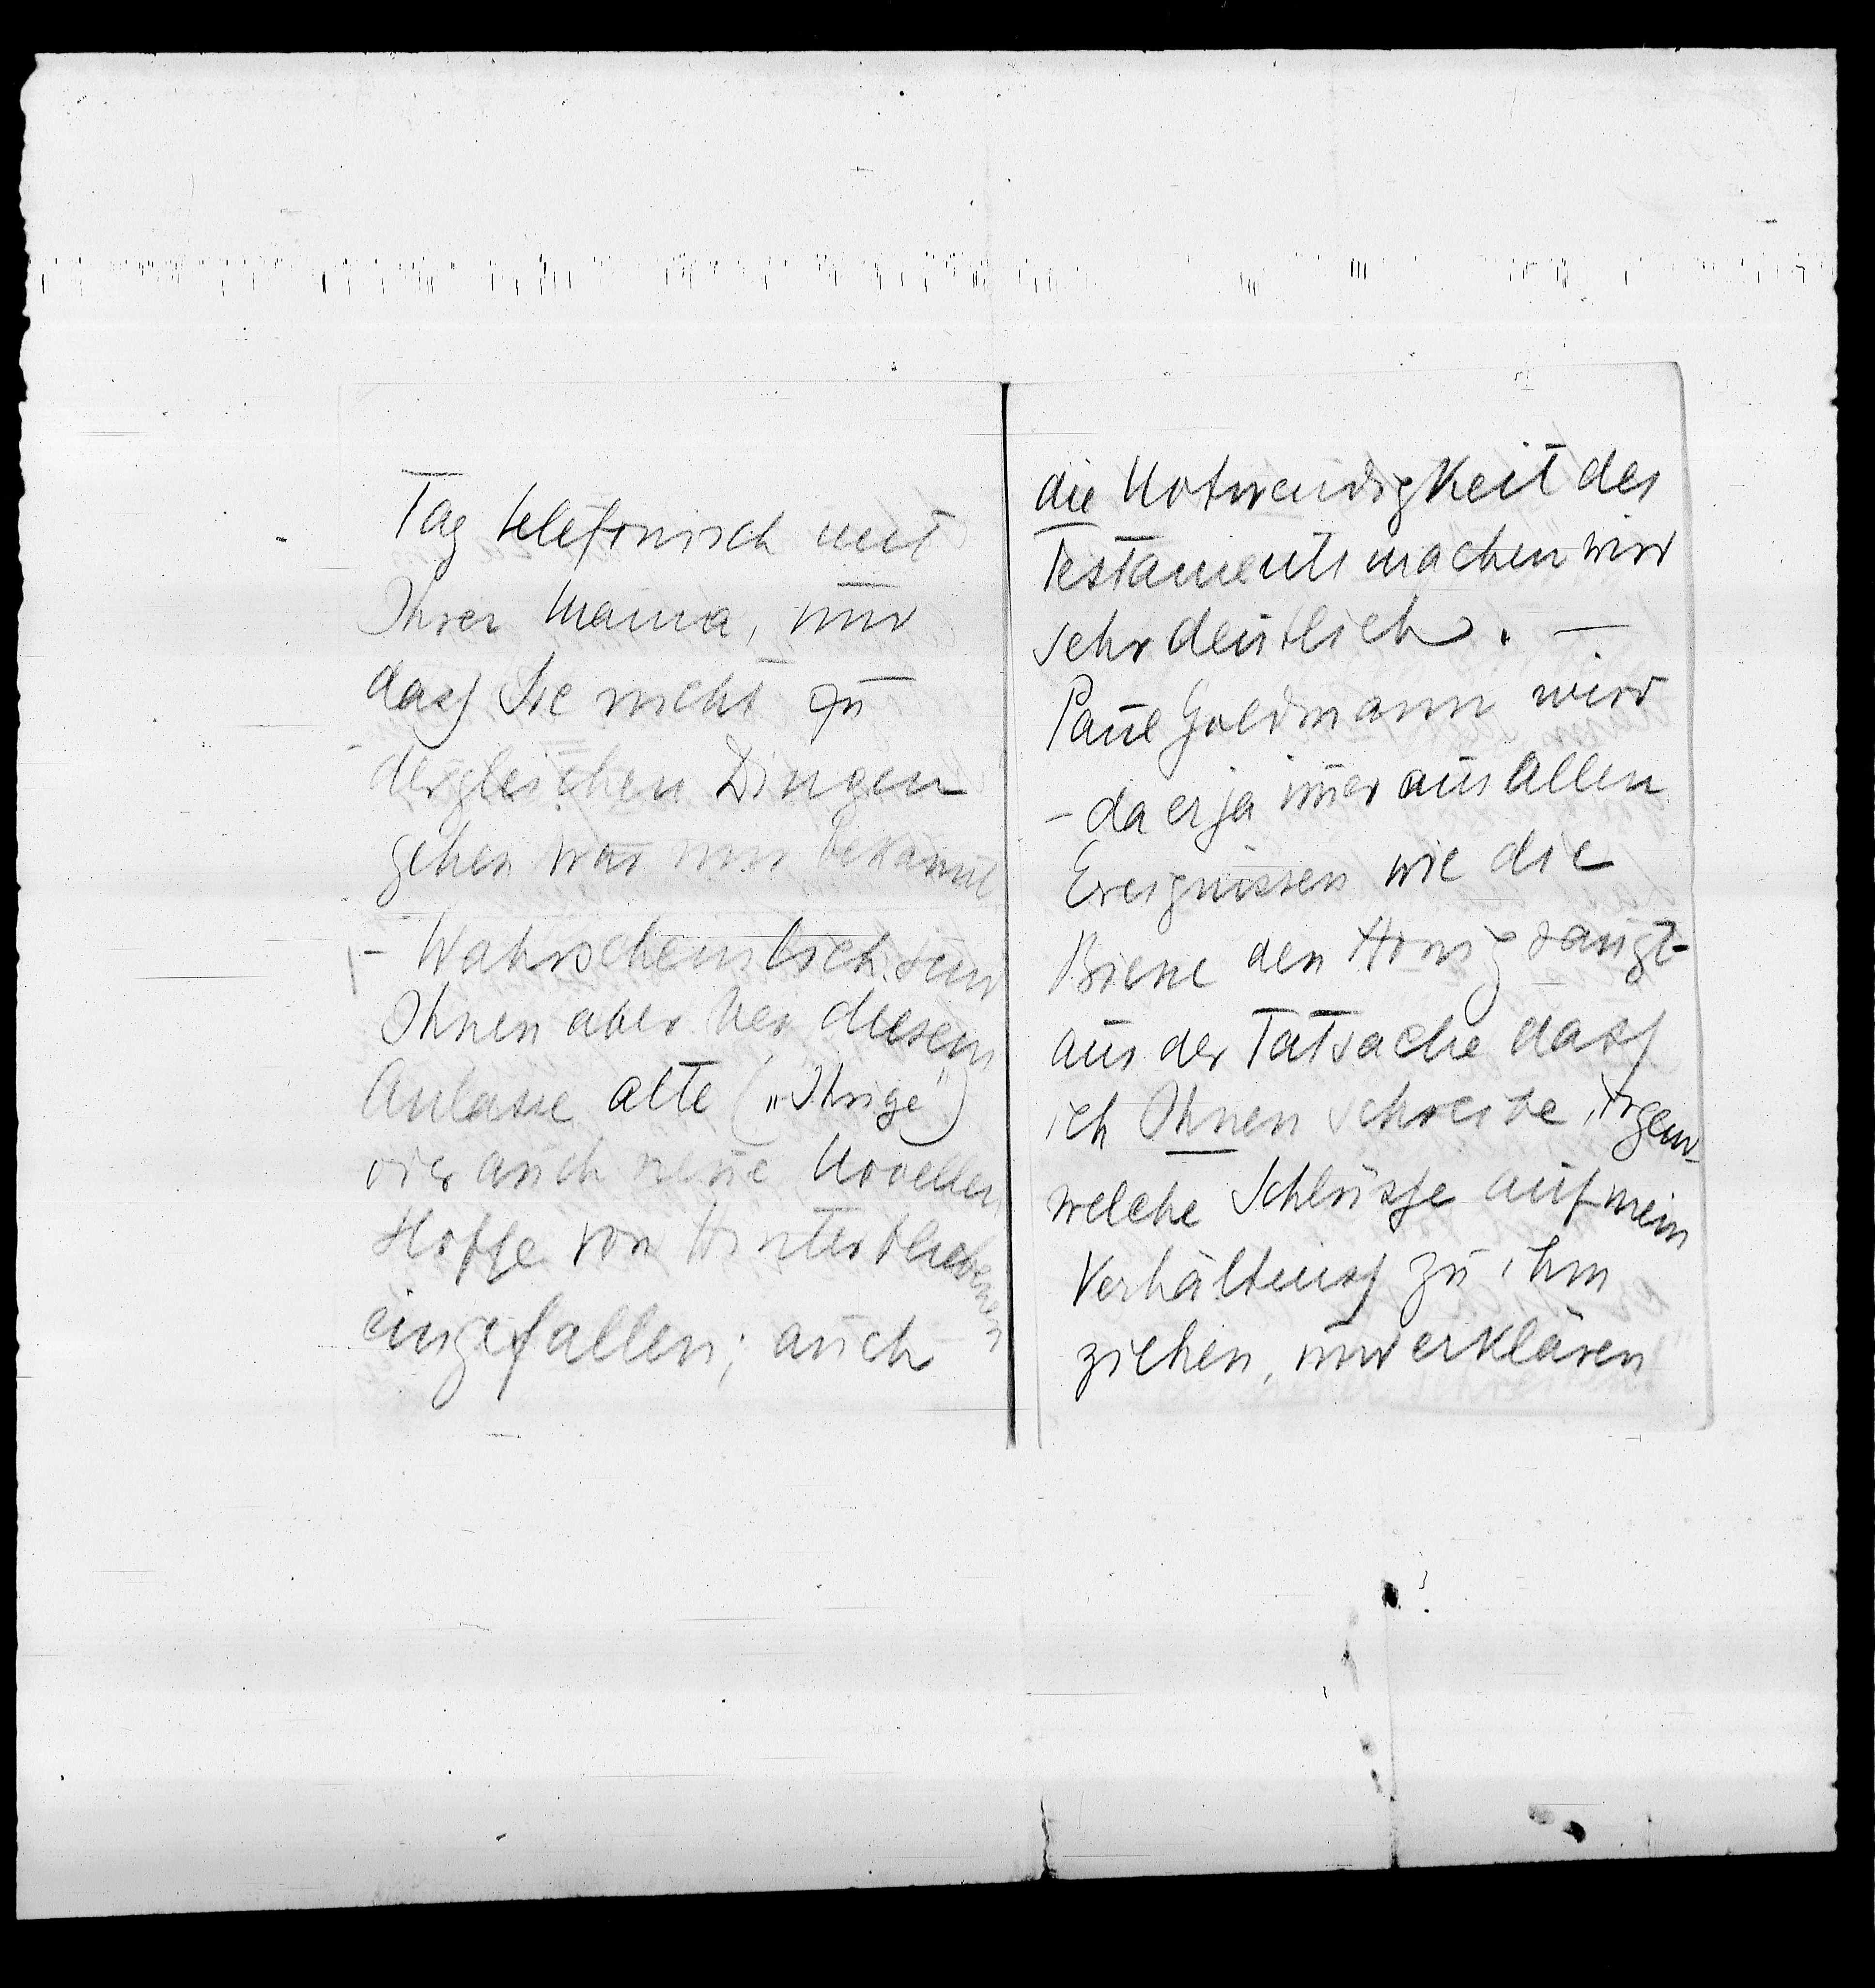 Tag telefonisch mit
Ihrer Mama, und
dass Sie nicht zu
dergleichen Dingen
gehen war mir bekannt
– Wahrscheinlich sind
Ihnen aber bei diesem
Anlasse alte („Ihrige")
oder auch neue Novellen
Stoffe von Hinterbliebenen
eingefallen; auch
die Notwendigkeit des
Testaments machen wird
sehr deutlich. —
Paul Goldmann wird
– da er ja im̄er aus allen
Ereignissen wie die
Biene den Honig saugt –
aus der Tatsache dass
ich Ihnen schreibe, irgend-
welche Schlüsse auf mein
Verhältniss zu ihm
ziehen, und erklären